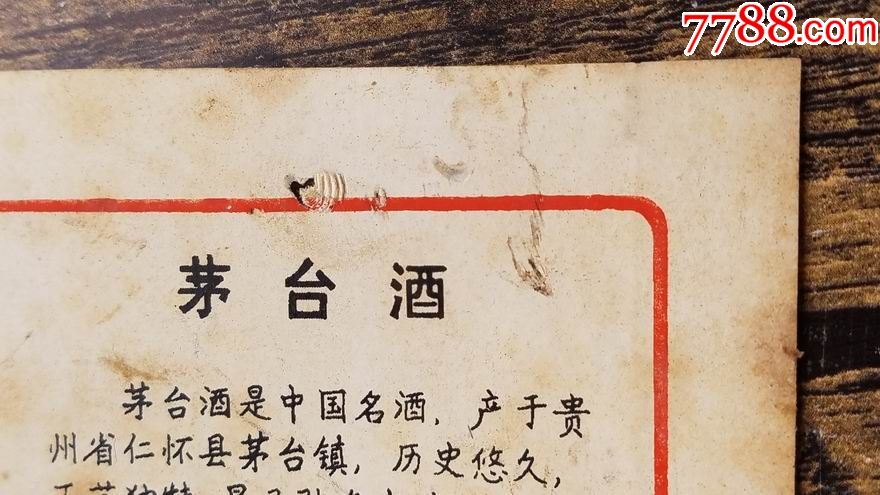 7788.com
茅台酒
茅台酒是中国名酒，产于贵
州省仁怀县茅台镇，历史悠久，